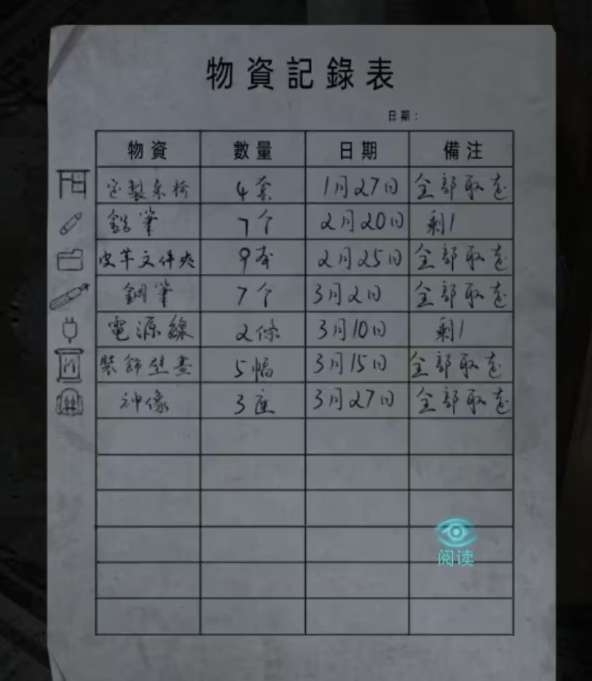 物資記錄表
日期：
物資 數量 日期 備注
定製桌椅 4套 1月27日 全部取走
鉛筆 7个 2月20日 剩1
皮革文件夾 9本 2月25日 全部取走
鋼筆 7个 3月2日 全部取走
電源線 2條 3月10日 剩1
裝飾壁畫 5幅 3月15日 全部取走
神像 3座 3月27日 全部取走
阅读